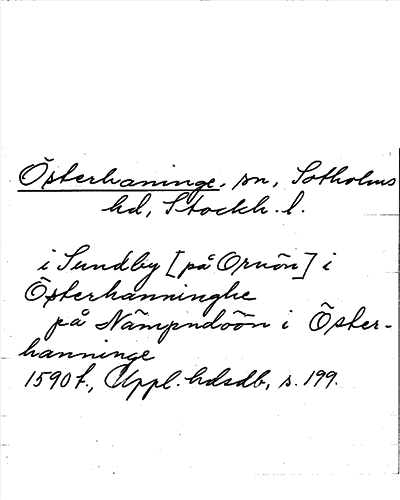 Österhaninge, sn, Sotholms
hd, Stockh. l.
i Sundby [på Ornön] i
Österhanninghe
på Nämpndöön i Öster-
hanninge
1590 f., Uppl. hdsdb, s. 199.